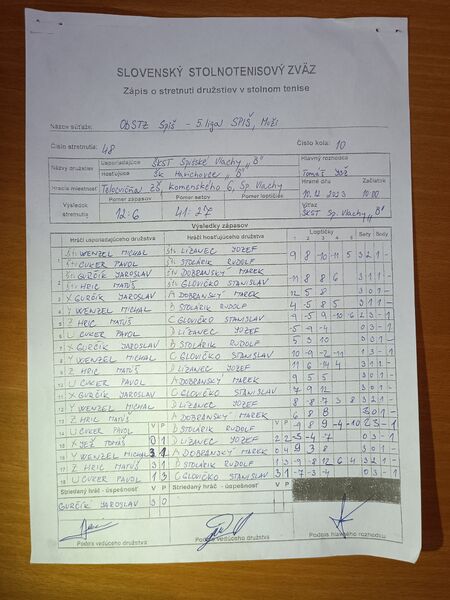 SLOVENSKÝ STOLNOTENISOVÝ ZVÄZ
Zápis o stretnutí družstiev v stolnom tenise
Názov súťaže: ObSTZ Spiš - 5.liga SPIŠ, Muži
Číslo stretnutia: 48 Číslo kola: 10
Názov družstva Usporiadajúce ŠKST Spišské Vlachy „B" Hlavný rozhodca
Hosťujúce ŠK Harichovce „B" Tomáš Jež
Hracia miestnosť Telocvičňa ZŠ, Komenského 6, Sp. Vlachy Hrané dňa 10.12.2023 Začiatok 10:00
Výsledok stretnutia Pomer zápasov 12:6 Pomer setov 41:27 Pomer loptičiek Víťaz ŠKST Sp. Vlachy „B"
Výsledky zápasov
Hráči usporiadajúceho družstva Hráči hosťujúceho družstva Loptičky 1 2 3 4 5 Sety Body
WENZEL MICHAL LIZANEC JOZEF 9 8 -10 -11 5 3 2 1 -
CUKER PAVOL STOLÁRIK RUDOLF
GURČÍK JAROSLAV DOBRANSKÝ MAREK 11 8 8 6 3 1 1 -
HRIC MATÚŠ GLOVIČKO STANISLAV
X GURČÍK JAROSLAV A DOBRANSKÝ MAREK 12 5 8 3 0 1 -
Y WENZEL MICHAL B STOLÁRIK RUDOLF
Z HRIC MATÚŠ C GLOVIČKO STANISLAV
U CUKER PAVOL D LIZANEC JOZEF 0 3 - 1
X GURČÍK JAROSLAV B STOLÁRIK RUDOLF 5 3 10 3 0 1 -
Y WENZEL MICHAL C GLOVIČKO STANISLAV 10 -9 -2 -11 1 3 - 1
Z HRIC MATÚŠ D LIZANEC JOZEF
U CUKER PAVOL A DOBRANSKÝ MAREK 9 5 5 3 0 1 -
X GURČÍK JAROSLAV C GLOVIČKO STANISLAV 7 9 12 3 0 1 -
Y WENZEL MICHAL D LIZANEC JOZEF 8 -8 -7 3 8 3 2 1 -
Z HRIC MATÚŠ A DOBRANSKÝ MAREK 6 8 8 3 0 1 -
U CUKER PAVOL V P B STOLÁRIK RUDOLF V P
X JEŽ TOMÁŠ 0 1 D LIZANEC JOZEF
Y WENZEL MICHAL 3 1 A DOBRANSKÝ MAREK 0 4
Z HRIC MATÚŠ 3 1 B STOLÁRIK RUDOLF 1 3
U CUKER PAVOL 1 3 C GLOVIČKO STANISLAV 3 1
Striedaný hráč - úspešnosť V P Striedaný hráč - úspešnosť V P
GURČÍK JAROSLAV 3 0
Podpis vedúceho družstva Podpis vedúceho družstva Podpis hlavného rozhodcu